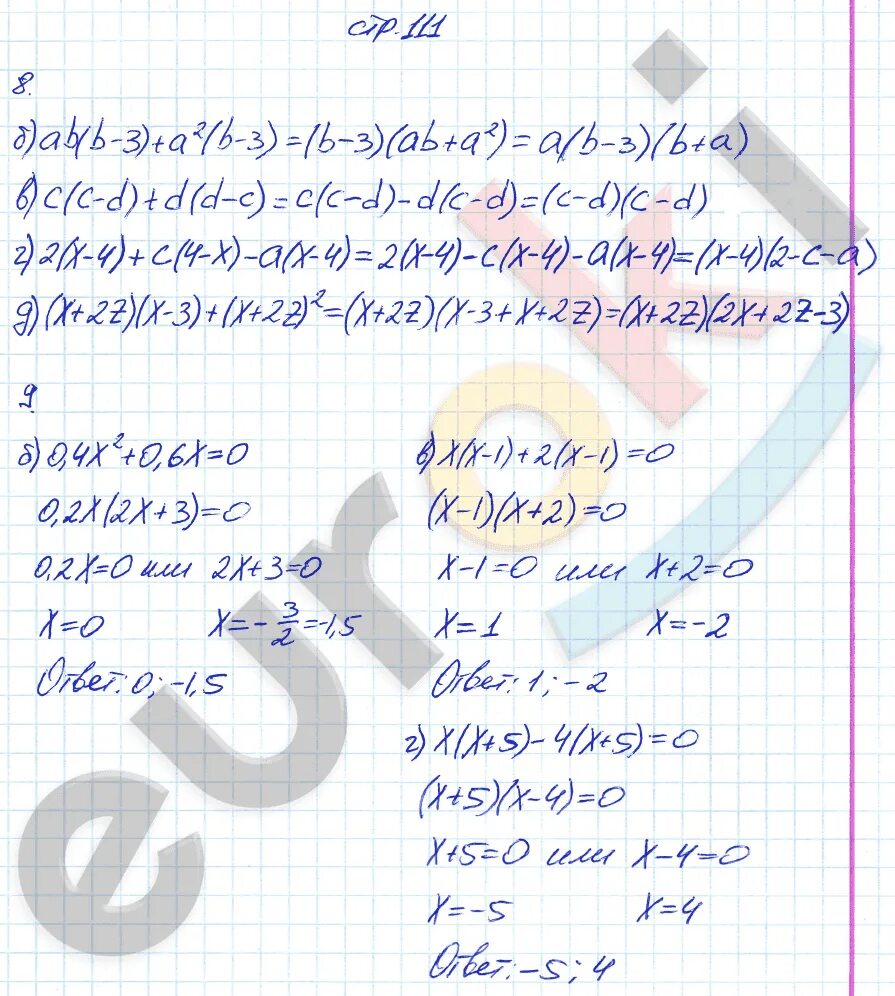 стр. 111
8.
б) ab(b-3)+a²(b-3)=(b-3)(ab+a²)=a(b-3)(b+a)
в) c(c-d)+d(d-c)=c(c-d)-d(c-d)=(c-d)(c-d)
г) 2(x-4)+c(4-x)-a(x-4)=2(x-4)-c(x-4)-a(x-4)=(x-4)(2-c-a)
д) (x+2z)(x-3)+(x+2z)²=(x+2z)(x-3+x+2z)=(x+2z)(2x+2z-3)
9
б) 0,4x²+0,6x=0
0,2x(2x+3)=0
0,2x=0 или 2x+3=0
x=0 x=-3/2=-1,5
Ответ: 0; -1,5
в) x(x-1)+2(x-1)=0
(x-1)(x+2)=0
x-1=0 или x+2=0
x=1 x=-2
Ответ: 1; -2
г) x(x+5)-4(x+5)=0
(x+5)(x-4)=0
x+5=0 или x-4=0
x=-5 x=4
Ответ: -5; 4
euroki